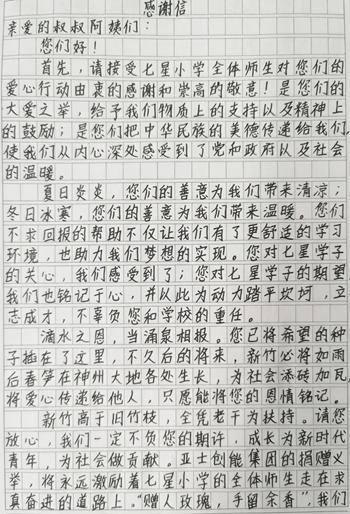 感谢信
亲爱的叔叔阿姨们：
您们好！
首先，请接受七星小学全体师生对您们的
爱心行动由衷的感谢和崇高的敬意！是您们的
大爱之举，给予我们物质上的支持以及精神上
的鼓励；是您们把中华民族的美德传递给我们，
使我们从内心深处感受到了党和政府以及社会
的温暖。
夏日炎炎，您们的善意为我们带来清凉；
冬日冰寒，您们的善意为我们带来温暖。您们
不求回报的帮助不仅让我们有了更舒适的学习
环境，也助力我们梦想的实现。您对七星学子
的关心，我们感受到了；您对七星学子的期望
我们也铭记于心，并从此为动力踏平坎坷，立
志成才，不辜负您和学校的重任。
滴水之恩，当涌泉相报。您已将希望的种
子插在了这里，不久后的将来，新竹必将如雨
后春笋在神州大地各处生长，为社会添砖加瓦，
将爱心传递给他人，只愿能将您的恩情铭记。
新竹高于旧竹枝，全凭老干为扶持。请您
放心，我们一定不负您的期许，成长为新时代
青年，为社会做贡献。亚士创能集团的捐赠义
举，将永远激励着七星小学的全体师生走在求
真奋进的道路上。“赠人玫瑰，手留余香”，我们